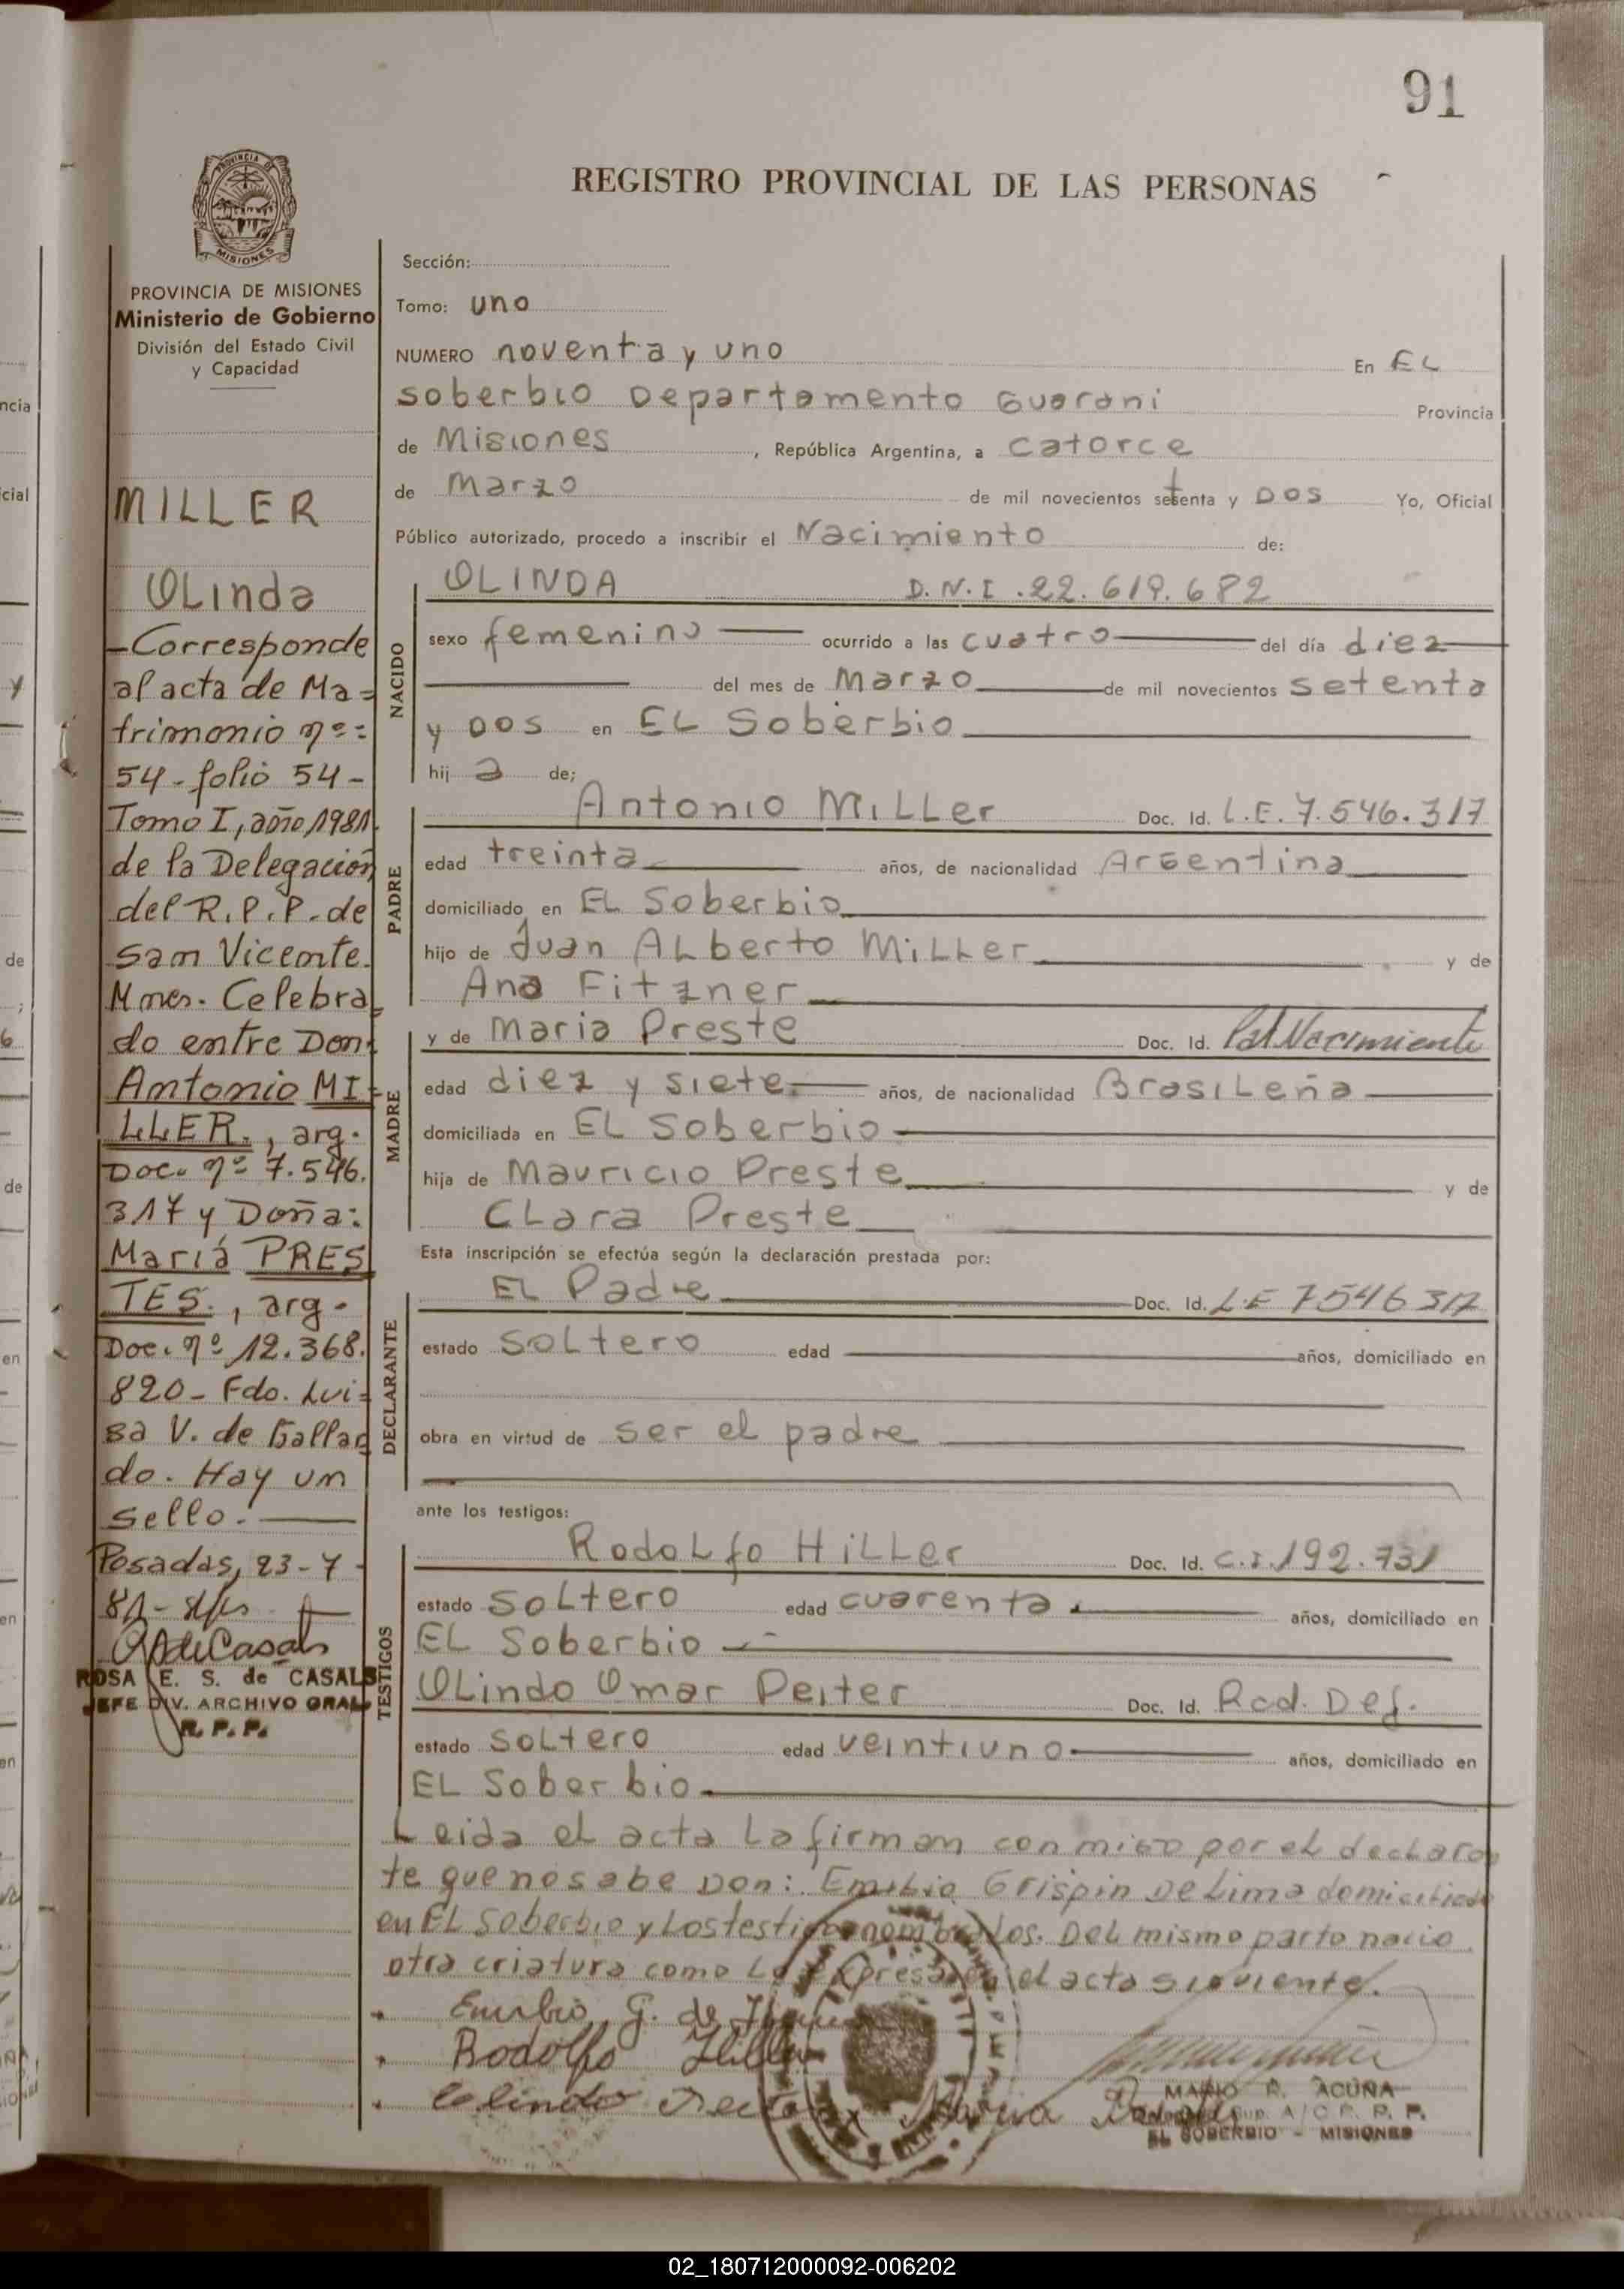 91
REGISTRO PROVINCIAL DE LAS PERSONAS
PROVINCIA DE
MISIONES
PROVINCIA DE MISIONES
Ministerio de Gobierno
División del Estado Civil
y Capacidad
MILLER
OLinda
-Corresponde
al acta de Ma=
trimonio nº=
54-folio 54-
Tomo I, año 1981.
de la Delegación
del R.P.P. de
San Vicente.
Mnes. Celebra
do entre Don:
Antonio MI=
LLER., arg.
Doc. nº 7.546.
317 y Doña:
María PRES
TES., arg.
Doc. nº 12.368.
820- Fdo. Lui=
sa V. de Gallar
do. Hay un
sello.
Posadas, 23-7-
81-
ROSA E. S. de CASALS
JEFE DIV. ARCHIVO GRAL
R. P. P.
Sección:
Tomo: uno
NUMERO noventa y uno En EL
soberbio Departamento Guarani Provincia
de Misiones, República Argentina, a catorce
de Marzo de mil novecientos setenta y DOS Yo, Oficial
Público autorizado, procedo a inscribir el Nacimiento de:
NACIDO
OLINDA D.N.I. 22.619.682
sexo femenino ocurrido a las cuatro del día diez
del mes de Marzo de mil novecientos setenta
y DOS en EL Soberbio
hij a de;
PADRE
Antonio MiLLer Doc. Id. L.E. 7.546.317
edad treinta años, de nacionalidad Argentina
domiciliado en EL Soberbio
hijo de Juan ALberto MiLLer y de
Ana Fitzner
MADRE
y de Maria Preste Doc. Id. Nacimiento
edad diez y siete años, de nacionalidad BrasiLeña
domiciliada en EL Soberbio
hija de Mauricio Preste y de
CLara Preste
Esta inscripción se efectúa según la declaración prestada por:
DECLARANTE
EL Padre Doc. Id. L.E 7546317
estado SoLtero edad años, domiciliado en
obra en virtud de ser el padre
ante los testigos:
TESTIGOS
RodoLfo HiLLer Doc. Id. C.I. 192.731
estado SoLtero edad cuarenta años, domiciliado en
EL Soberbio
OLindo Omar Peiter Doc. Id. Rcd. Def.
estado SoLtero edad veintiuno años, domiciliado en
EL Soberbio
Leida el acta La firman conmigo por el declaran
te que no sabe Don: Emibio Crispin De Lima domiciliado
en EL Soberbio y Los testigos nombrados. Del mismo parto nacio
otra criatura como Lo expresa en el acta siguiente.
Emibio G. de
Rodolfo Hiller
Olindo Peiter
Maria
MARIO R. ACUÑA
Sup. A/C R. P. P.
EL SOBERBIO - MISIONES
02_180712000092-006202